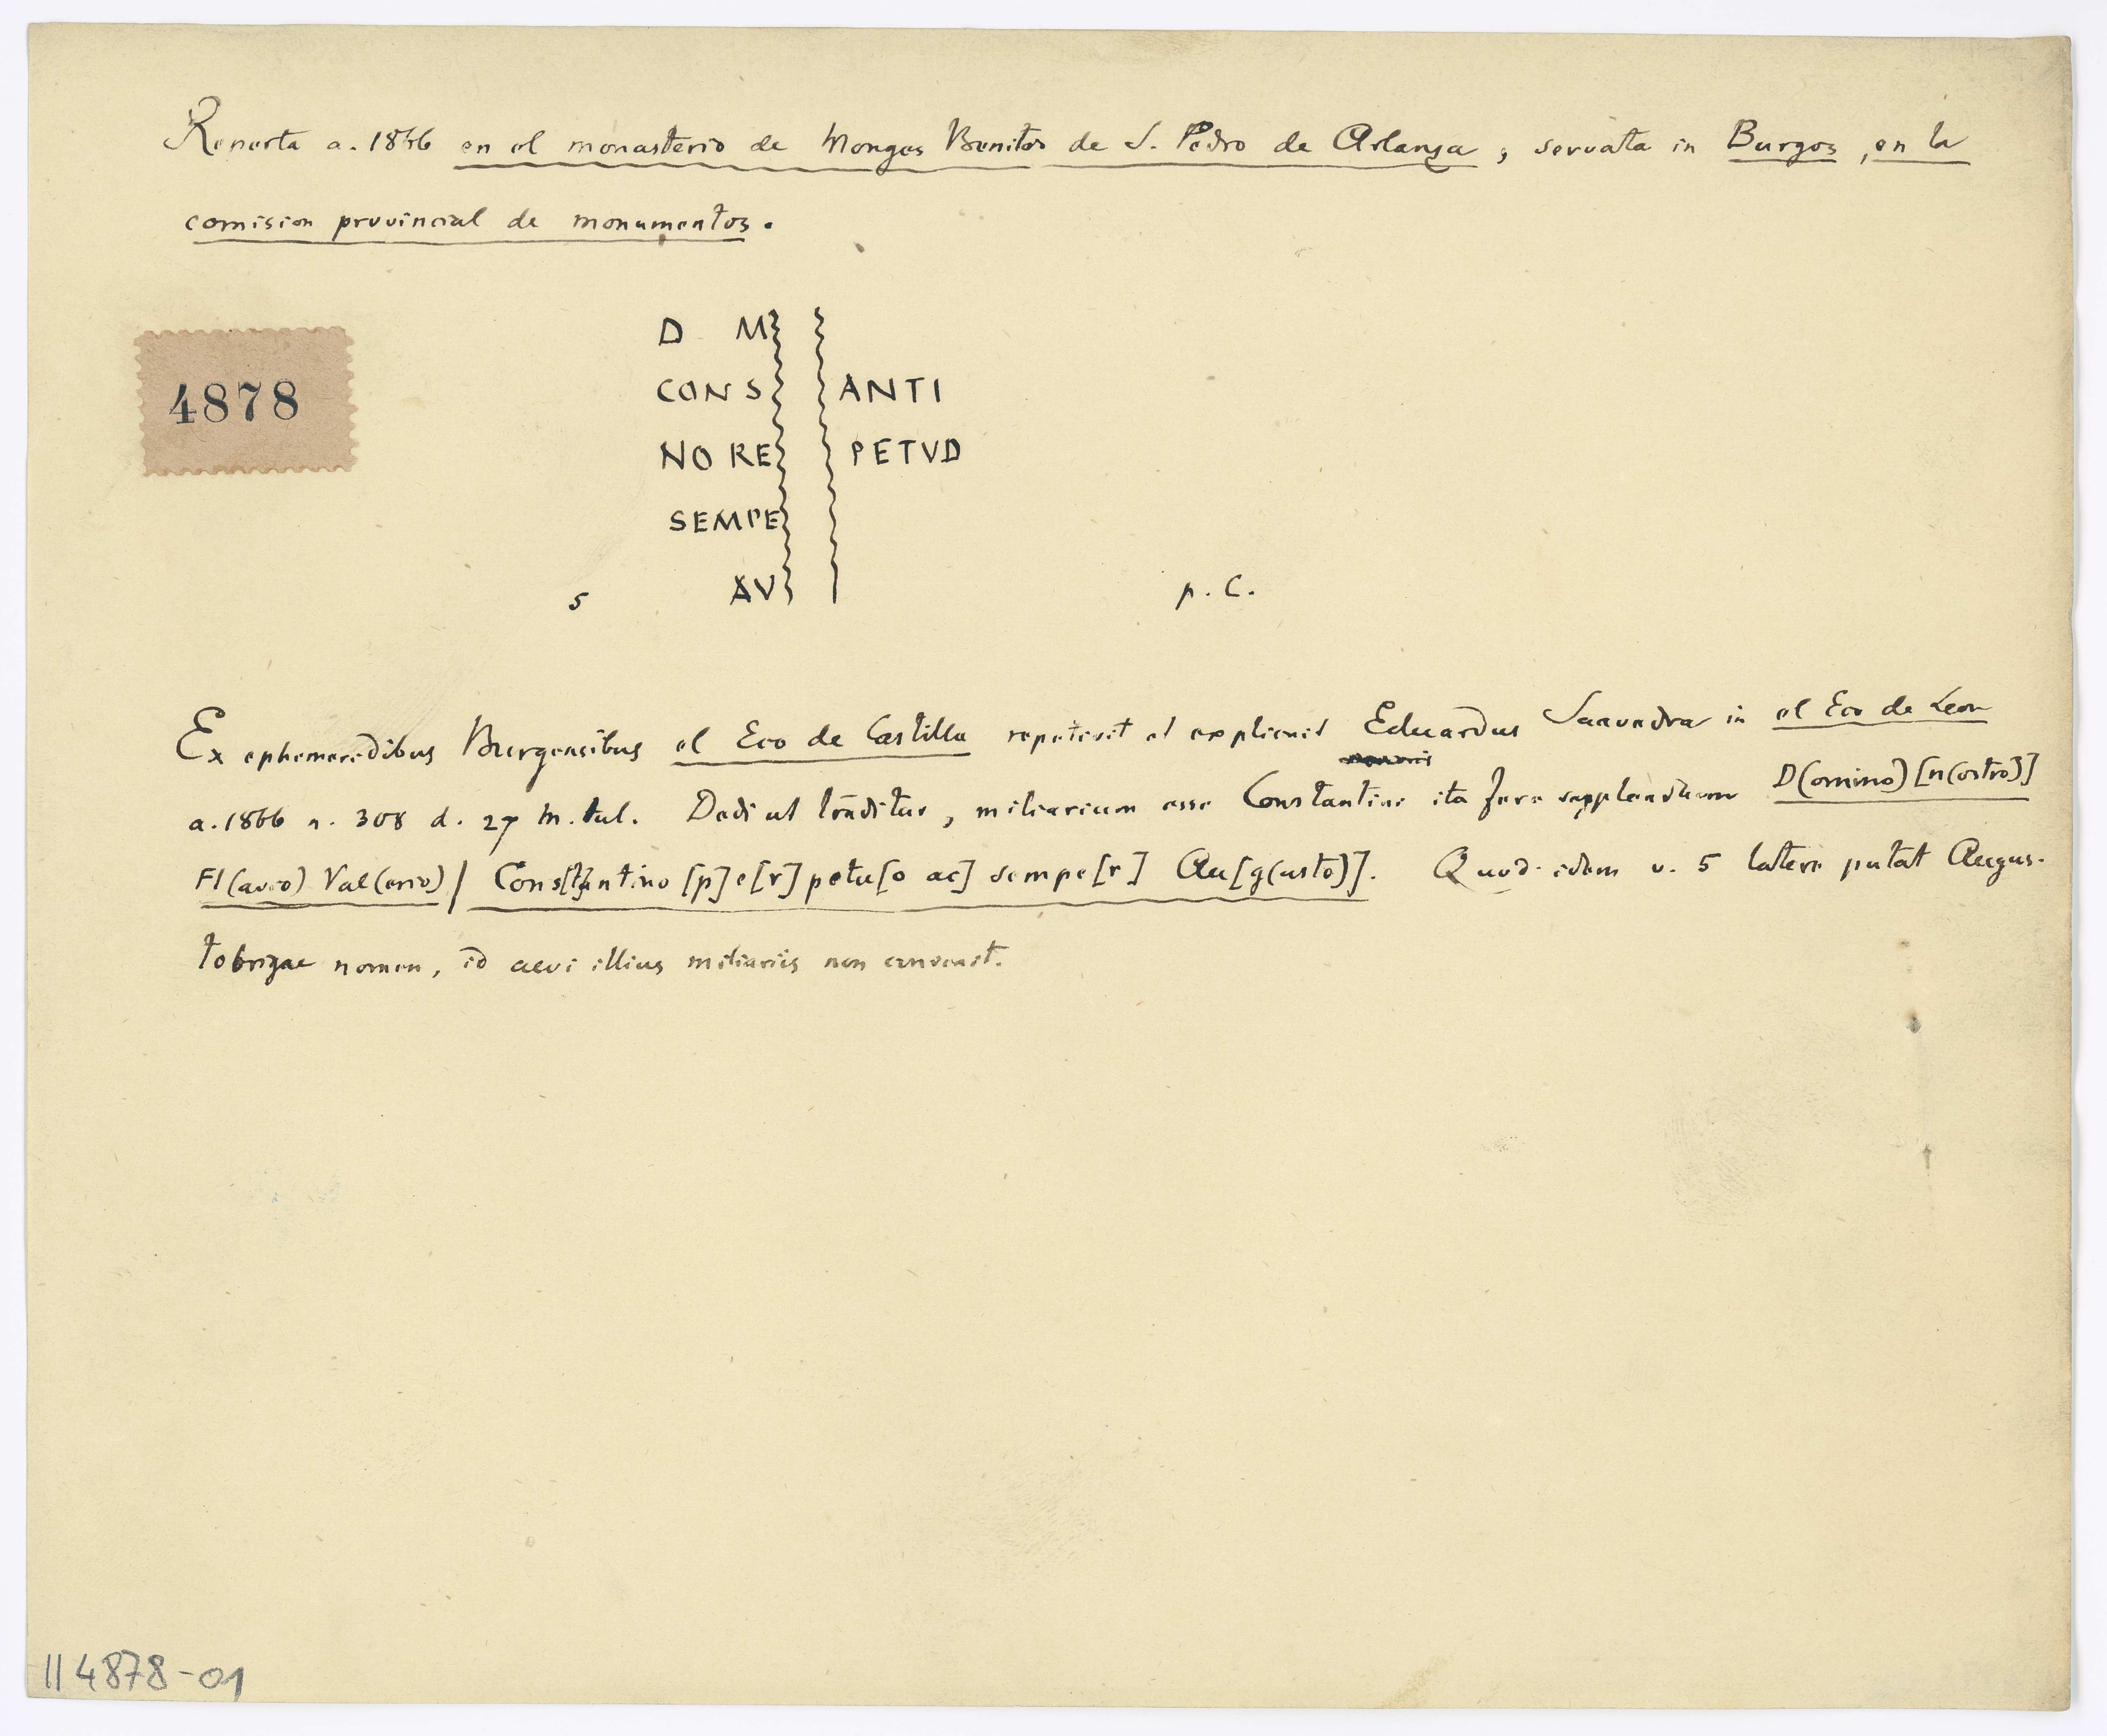 Reperta a. 1866 en el monasterio de Monges Benitos de S. Pedro de Arlanza, servata in Burgos, en la
comision provincial de monumentos.
4878
D M
CONS ANTI
NO RE PETVD
SEMPE
5 AV p. C.
Ex ephemeridibus Burgensibus el Eco de Castilla repetivit et explicuit Eduardus Saavedra in el Eco de Leon
a. 1866 n. 308 d. 27 m. Iul. Dedi ut traditur, miliarium esse Constantini ita fere supplendum D(omino) [n(ostro)]
Fl(avio) Val(erio) / Cons[t]antino [p]e[r]petu[o ac] sempe[r] Au[g(usto)]. Quod idem v. 5 latere putat Augus-
tobrigae nomen, id aevi illius miliariis non convenit.
II 4878-01